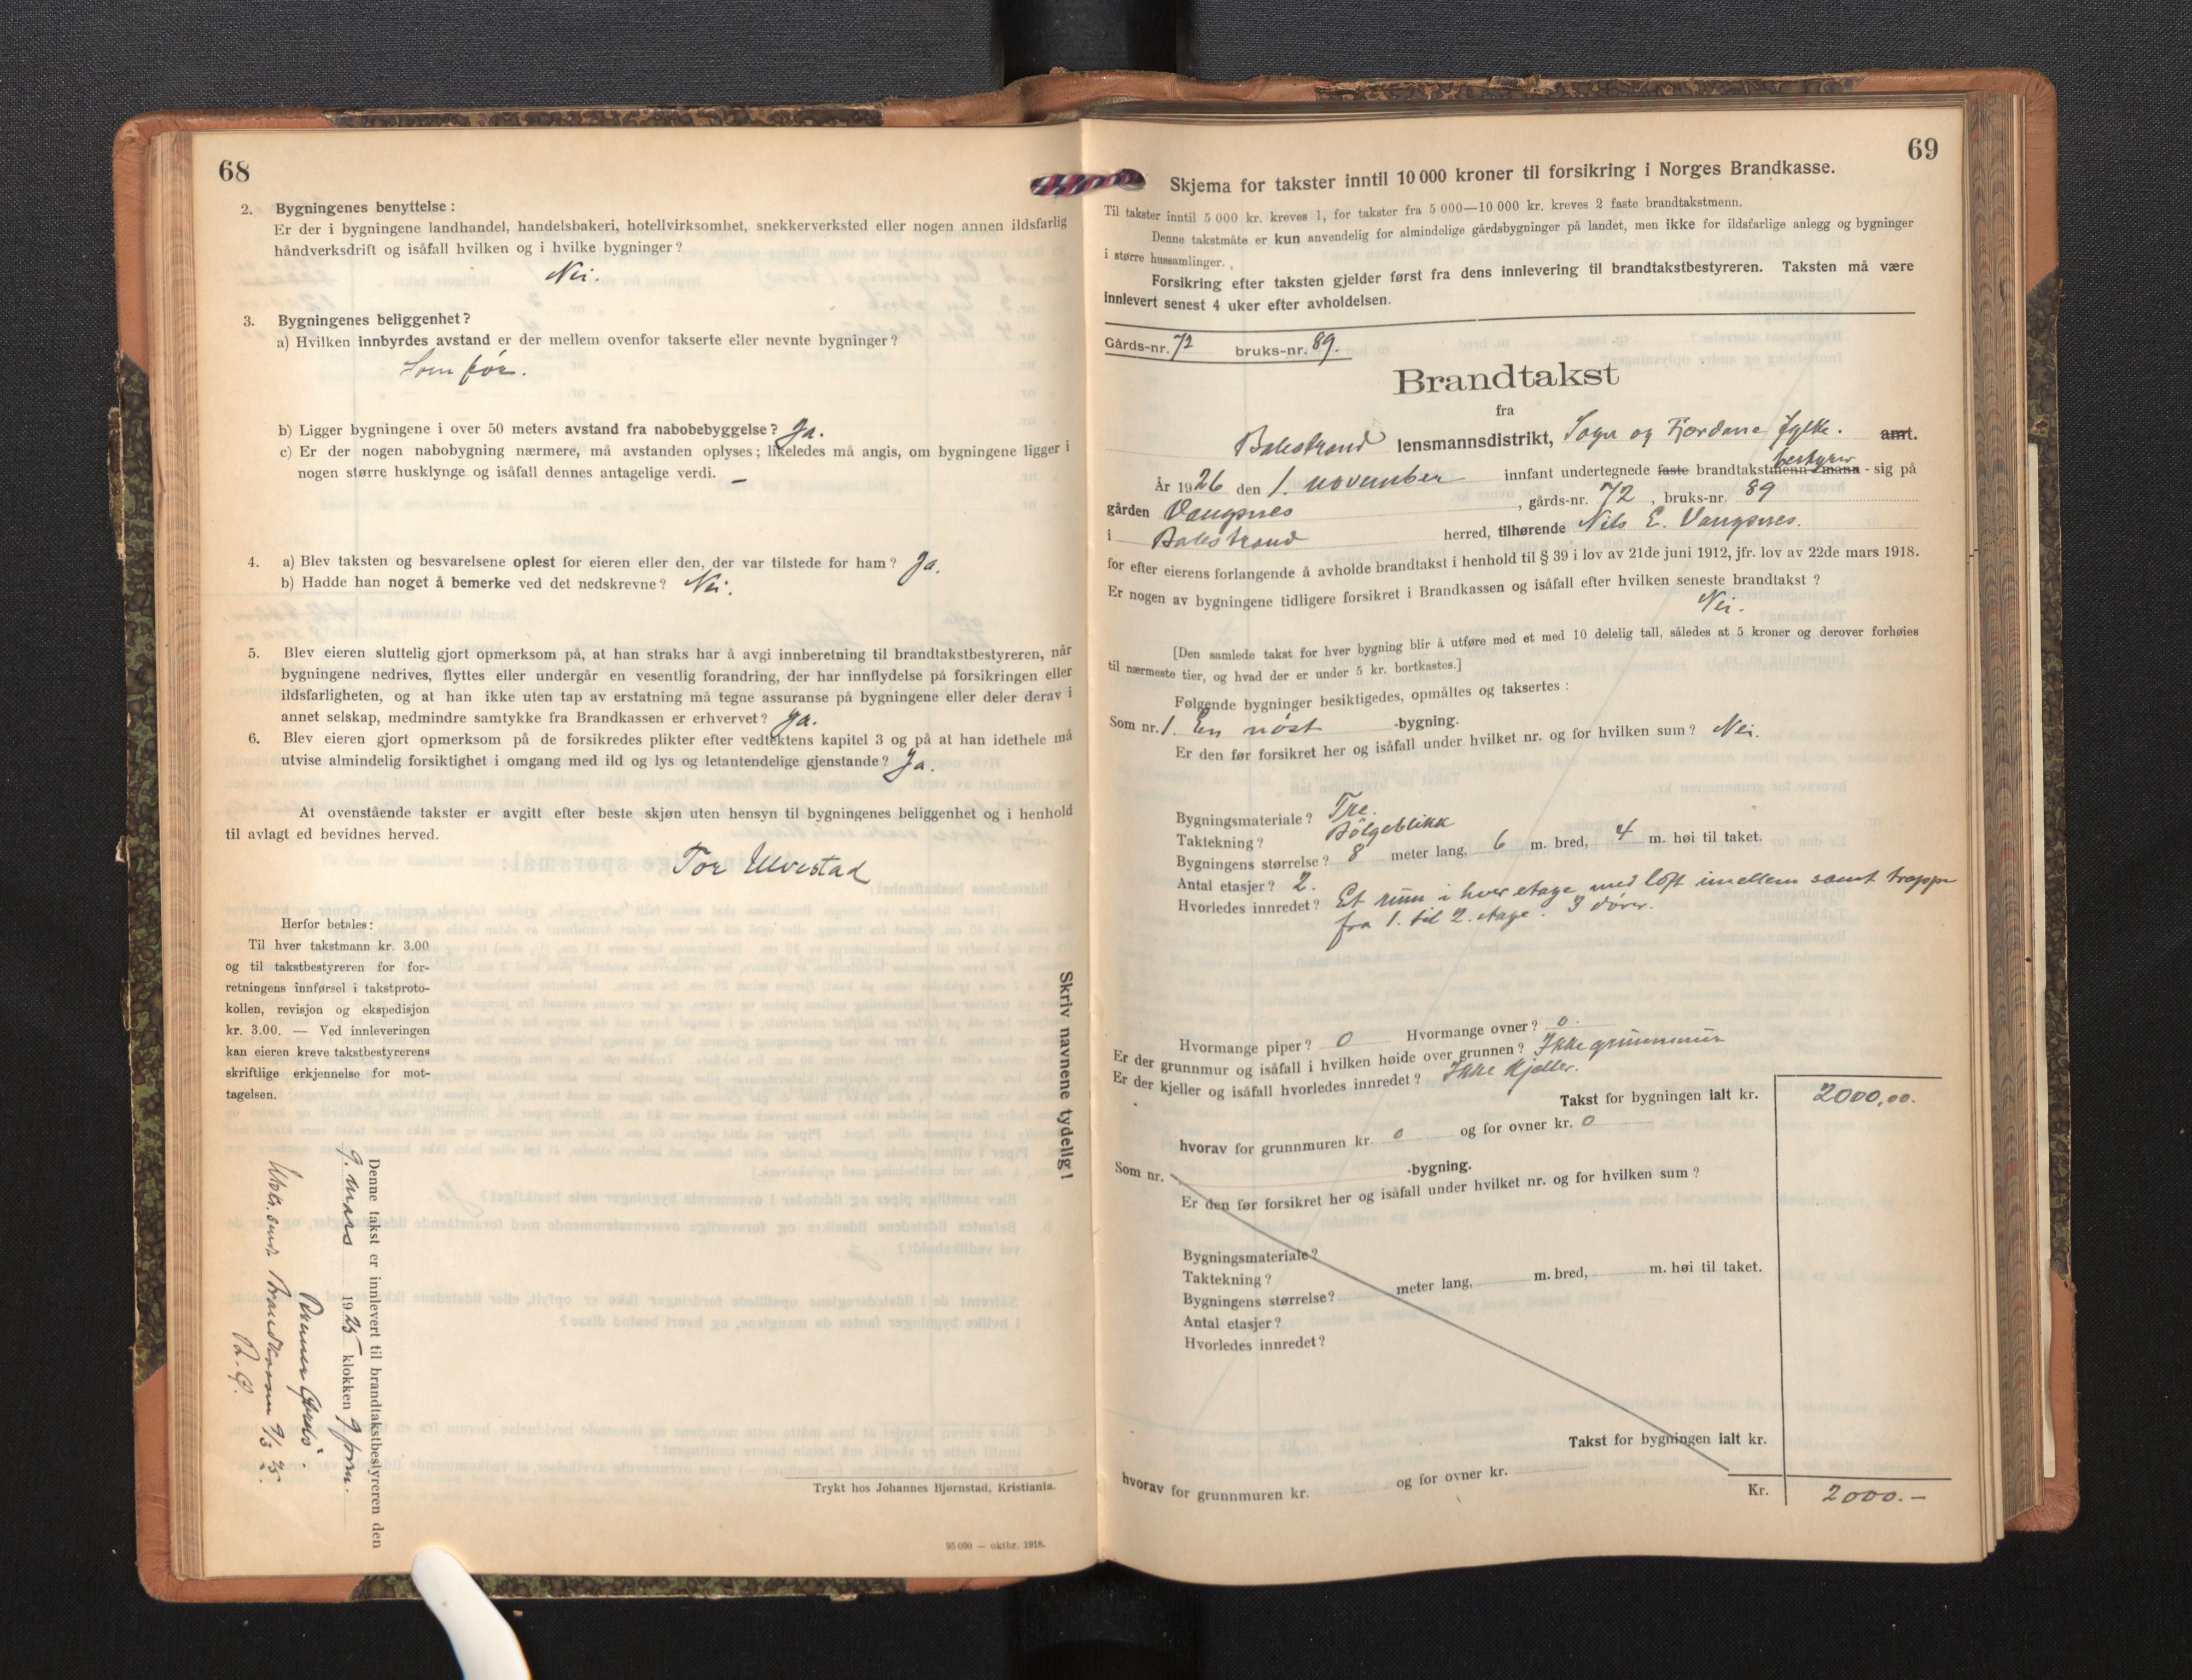 68
2. Bygningenes benyttelse:
Er der i bygningene landhandel, handelsbakeri, hotellvirksomhet, snekkerverksted eller nogen annen ildsfarlig
håndverksdrift og isåfall hvilken og i hvilke bygninger?
Nei.
3. Bygningenes beliggenhet?
a) Hvilken innbyrdes avstand er der mellem ovenfor takserte eller nevnte bygninger?
Som før.
b) Ligger bygningene i over 50 meters avstand fra nabobebyggelse? Ja.
c) Er der nogen nabobygning nærmere, må avstanden oplyses; likeledes må angis, om bygningene ligger i
nogen større husklynge og isåfall dennes antagelige verdi. —
4. a) Blev taksten og besvarelsene oplest for eieren eller den, der var tilstede for ham? Ja.
b) Hadde han noget å bemerke ved det nedskrevne? Nei.
5. Blev eieren sluttelig gjort opmerksom på, at han straks har å avgi innberetning til brandtakstbestyreren, når
bygningene nedrives, flyttes eller undergår en vesentlig forandring, der har innflydelse på forsikringen eller
ildsfarligheten, og at han ikke uten tap av erstatning må tegne assuranse på bygningene eller deler derav i
annet selskap, medmindre samtykke fra Brandkassen er erhvervet? Ja.
6. Blev eieren gjort opmerksom på de forsikredes plikter efter vedtektens kapitel 3 og på at han idethele må
utvise almindelig forsiktighet i omgang med ild og lys og letantendelige gjenstande? Ja.
At ovenstående takster er avgitt efter beste skjøn uten hensyn til bygningenes beliggenhet og i henhold
til avlagt ed bevidnes herved.
Tor Ulvestad
Herfor betales:
Til hver takstmann kr. 3.00
og til takstbestyreren for for-
retningens innførsel i takstproto-
kollen, revisjon og ekspedisjon
kr. 3.00. — Ved innleveringen
kan eieren kreve takstbestyrerens
skriftlige erkjennelse for mot-
tagelsen.
Skriv navnene tydelig!
Denne takst er innlevert til brandtakstbestyreren den
9. mars 1925 klokken 9 form.
Brandkassen 9/3 25.
Trykt hos Johannes Bjørnstad, Kristiania.
95 000 — oktbr. 1918.
69
Skjema for takster inntil 10 000 kroner til forsikring i Norges Brandkasse.
Til takster inntil 5 000 kr. kreves 1, for takster fra 5 000—10 000 kr. kreves 2 faste brandtakstmenn.
Denne takstmåte er kun anvendelig for almindelige gårdsbygninger på landet, men ikke for ildsfarlige anlegg og bygninger
i større hussamlinger.
Forsikring efter taksten gjelder først fra dens innlevering til brandtakstbestyreren. Taksten må være
innlevert senest 4 uker efter avholdelsen.
Gårds-nr. 72 bruks-nr. 89.
Brandtakst
fra
Balestrand lensmannsdistrikt, Sogn og Fjordane fylke. amt.
bestyrer
År 1926 den 1. november innfant undertegnede faste brandtakstmenn-mann - sig på
gården Vangsnes, gårds-nr. 72, bruks-nr. 89
i Balestrand herred, tilhørende Nils E. Vangsnes.
for efter eierens forlangende å avholde brandtakst i henhold til § 39 i lov av 21de juni 1912, jfr. lov av 22de mars 1918.
Er nogen av bygningene tidligere forsikret i Brandkassen og isåfall efter hvilken seneste brandtakst?
Nei.
[Den samlede takst for hver bygning blir å utføre med et med 10 delelig tall, således at 5 kroner og derover forhøies
til nærmeste tier, og hvad der er under 5 kr. bortkastes.]
Følgende bygninger besiktigedes, opmåltes og taksertes:
Som nr. 1. En nøst -bygning.
Er den før forsikret her og isåfall under hvilket nr. og for hvilken sum? Nei.
Bygningsmateriale? Tre.
Taktekning? Bölgeblikk
Bygningens størrelse? 8 meter lang, 6 m. bred, 4 m. høi til taket.
Antal etasjer? 2.
Hvorledes innredet? Et rum i hver etage med loft imellem samt trappe
fra 1. til 2. etage. 3 dører.
Hvormange piper? 0 Hvormange ovner? 0.
Er der grunnmur og isåfall i hvilken høide over grunnen? Ikke grunnmur
Er der kjeller og isåfall hvorledes innredet? Ikke kjeller.
Takst for bygningen ialt kr. 2000,00.
hvorav for grunnmuren kr. 0 og for ovner kr. 0
Som nr. -bygning.
Er den før forsikret her og isåfall under hvilket nr. og for hvilken sum?
Bygningsmateriale?
Taktekning?
Bygningens størrelse? meter lang, m. bred, m. høi til taket.
Antal etasjer?
Hvorledes innredet?
Takst for bygningen ialt kr.
hvorav for grunnmuren kr. og for ovner kr.
Kr. 2000.—